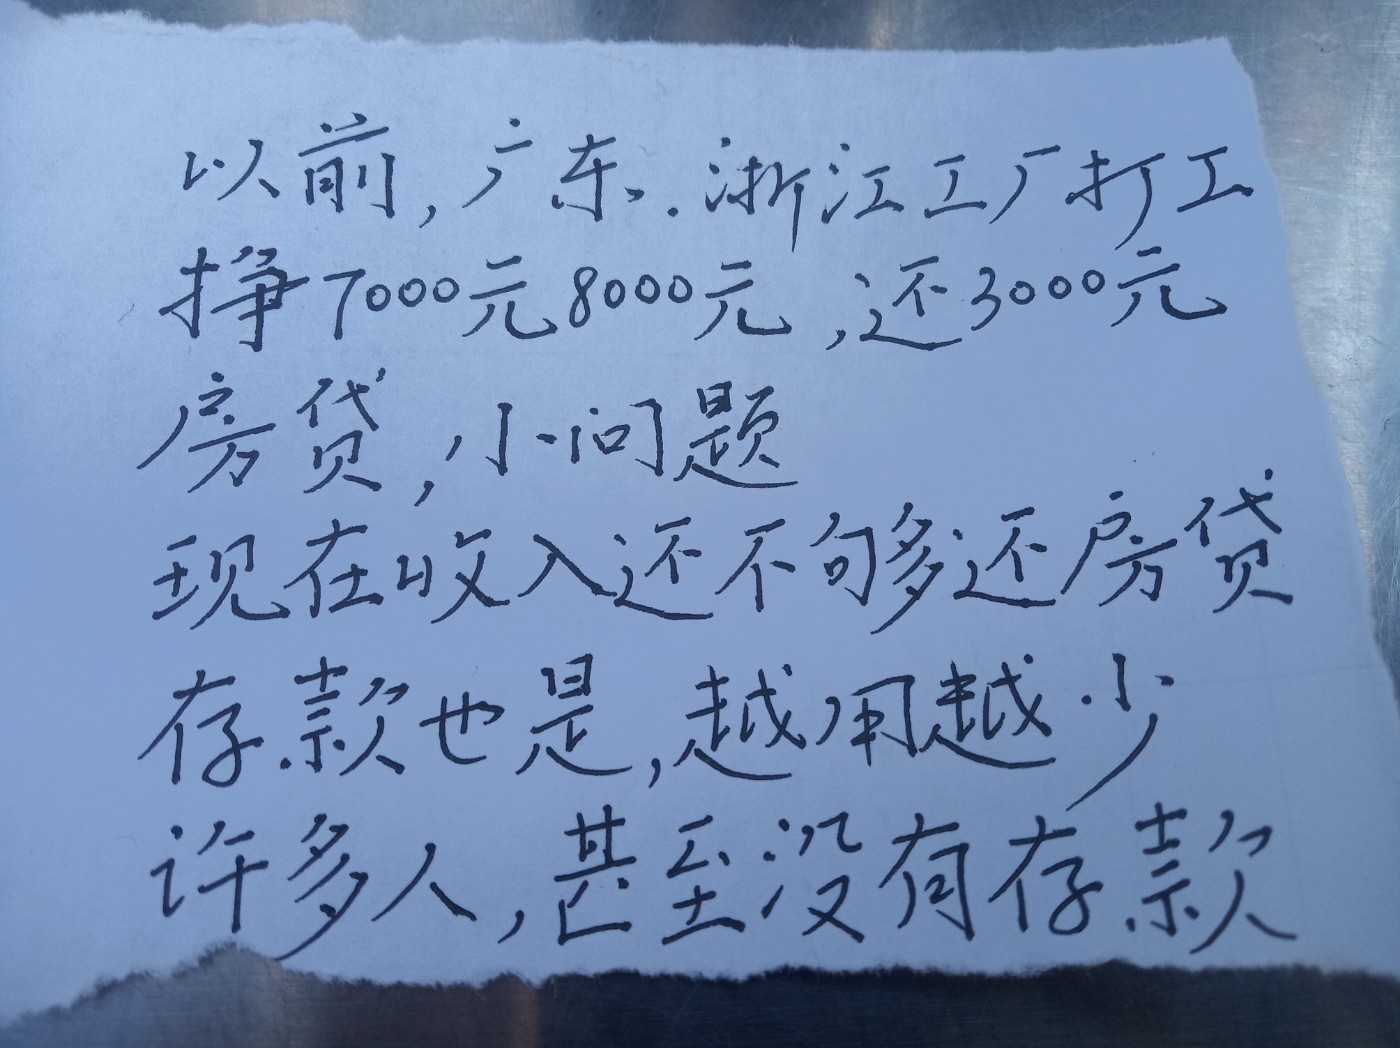 以前,广东.浙江工厂打工
挣7000元8000元,还3000元
房贷,小问题
现在收入还不够还房贷
存款也是,越用越少
许多人,甚至没有存款